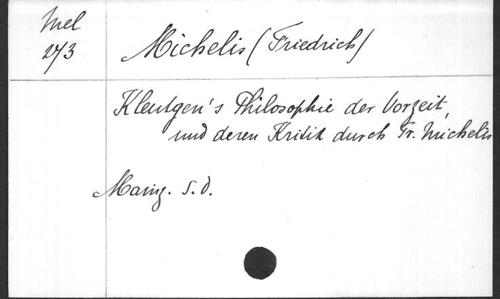 Mel
273
Michelis (Friedrich)
Kleutgen's Philosophie der Vorzeit,
und deren Kritik durch Fr. Michelis
Mainz. s.d.